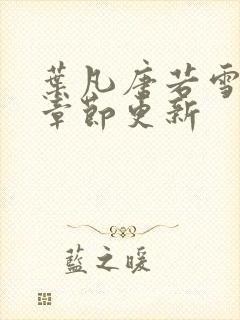 葉凡唐若雪
章節更新
藍之暖